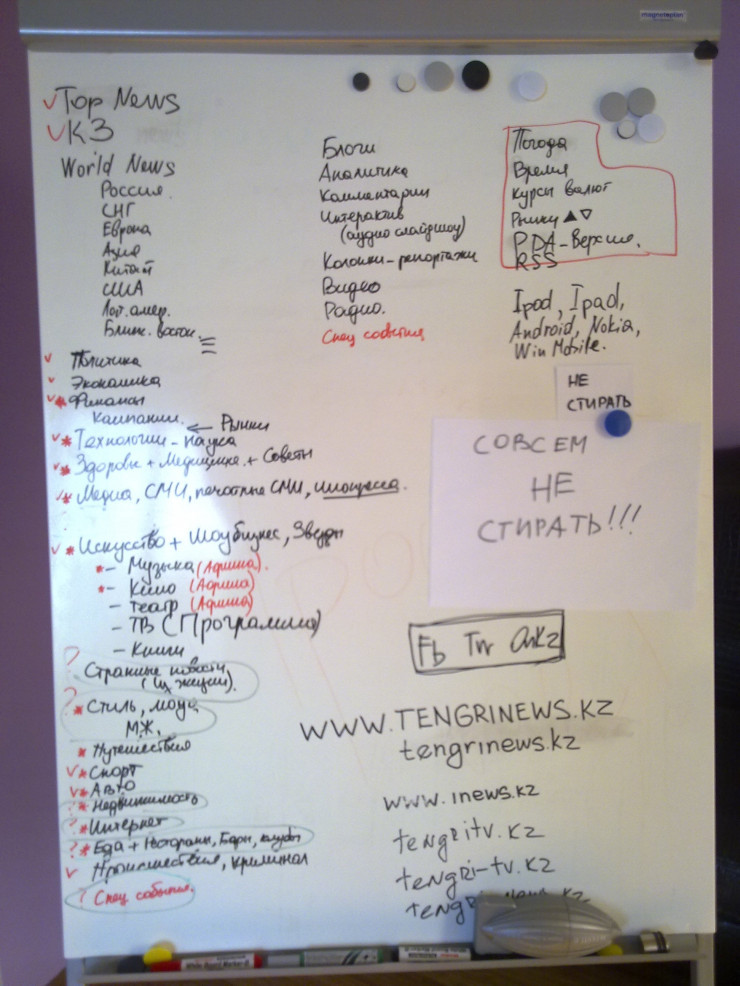 magnetoplan
Top News
КЗ
World News
Россия.
СНГ
Европа
Азия
Китай
США
Лат. амер.
Ближ. восток.
Политика
Экономика
Финансы
Кампании. ← Рынки
Технологии - наука
Здоровье + Медицина + Советы
Медиа, СМИ, печатные СМИ,
Искусство + Шоубизнес, Звезды
- Музыка (Афиша).
- Кино (Афиша)
- театр (Афиша)
- ТВ (Программа)
- Книги
Странные новости
(Из жизни).
Стиль, мода
МЖ.
Путешествия
Спорт
Авто
Недвижимость
Интернет
Еда + Рестораны, Бары, клубы
Происшествия, криминал
? Спец события.
Блоги
Аналитика
Комментарии
Интерактив
(аудио слайдшоу)
Колонки-репортажи
Видео
Радио.
Спец события
Погода
Время
Курсы валют
Рынки ▲▽
PDA-Версия.
RSS
Ipod, Ipad,
Android, Nokia,
Win Mobile.
НЕ
СТИРАТЬ
СОВСЕМ
НЕ
СТИРАТЬ!!!
Fb Tw
WWW.TENGRINEWS.KZ
tengrinews.kz
www.inews.kz
tengritv.kz
tengri-tv.kz